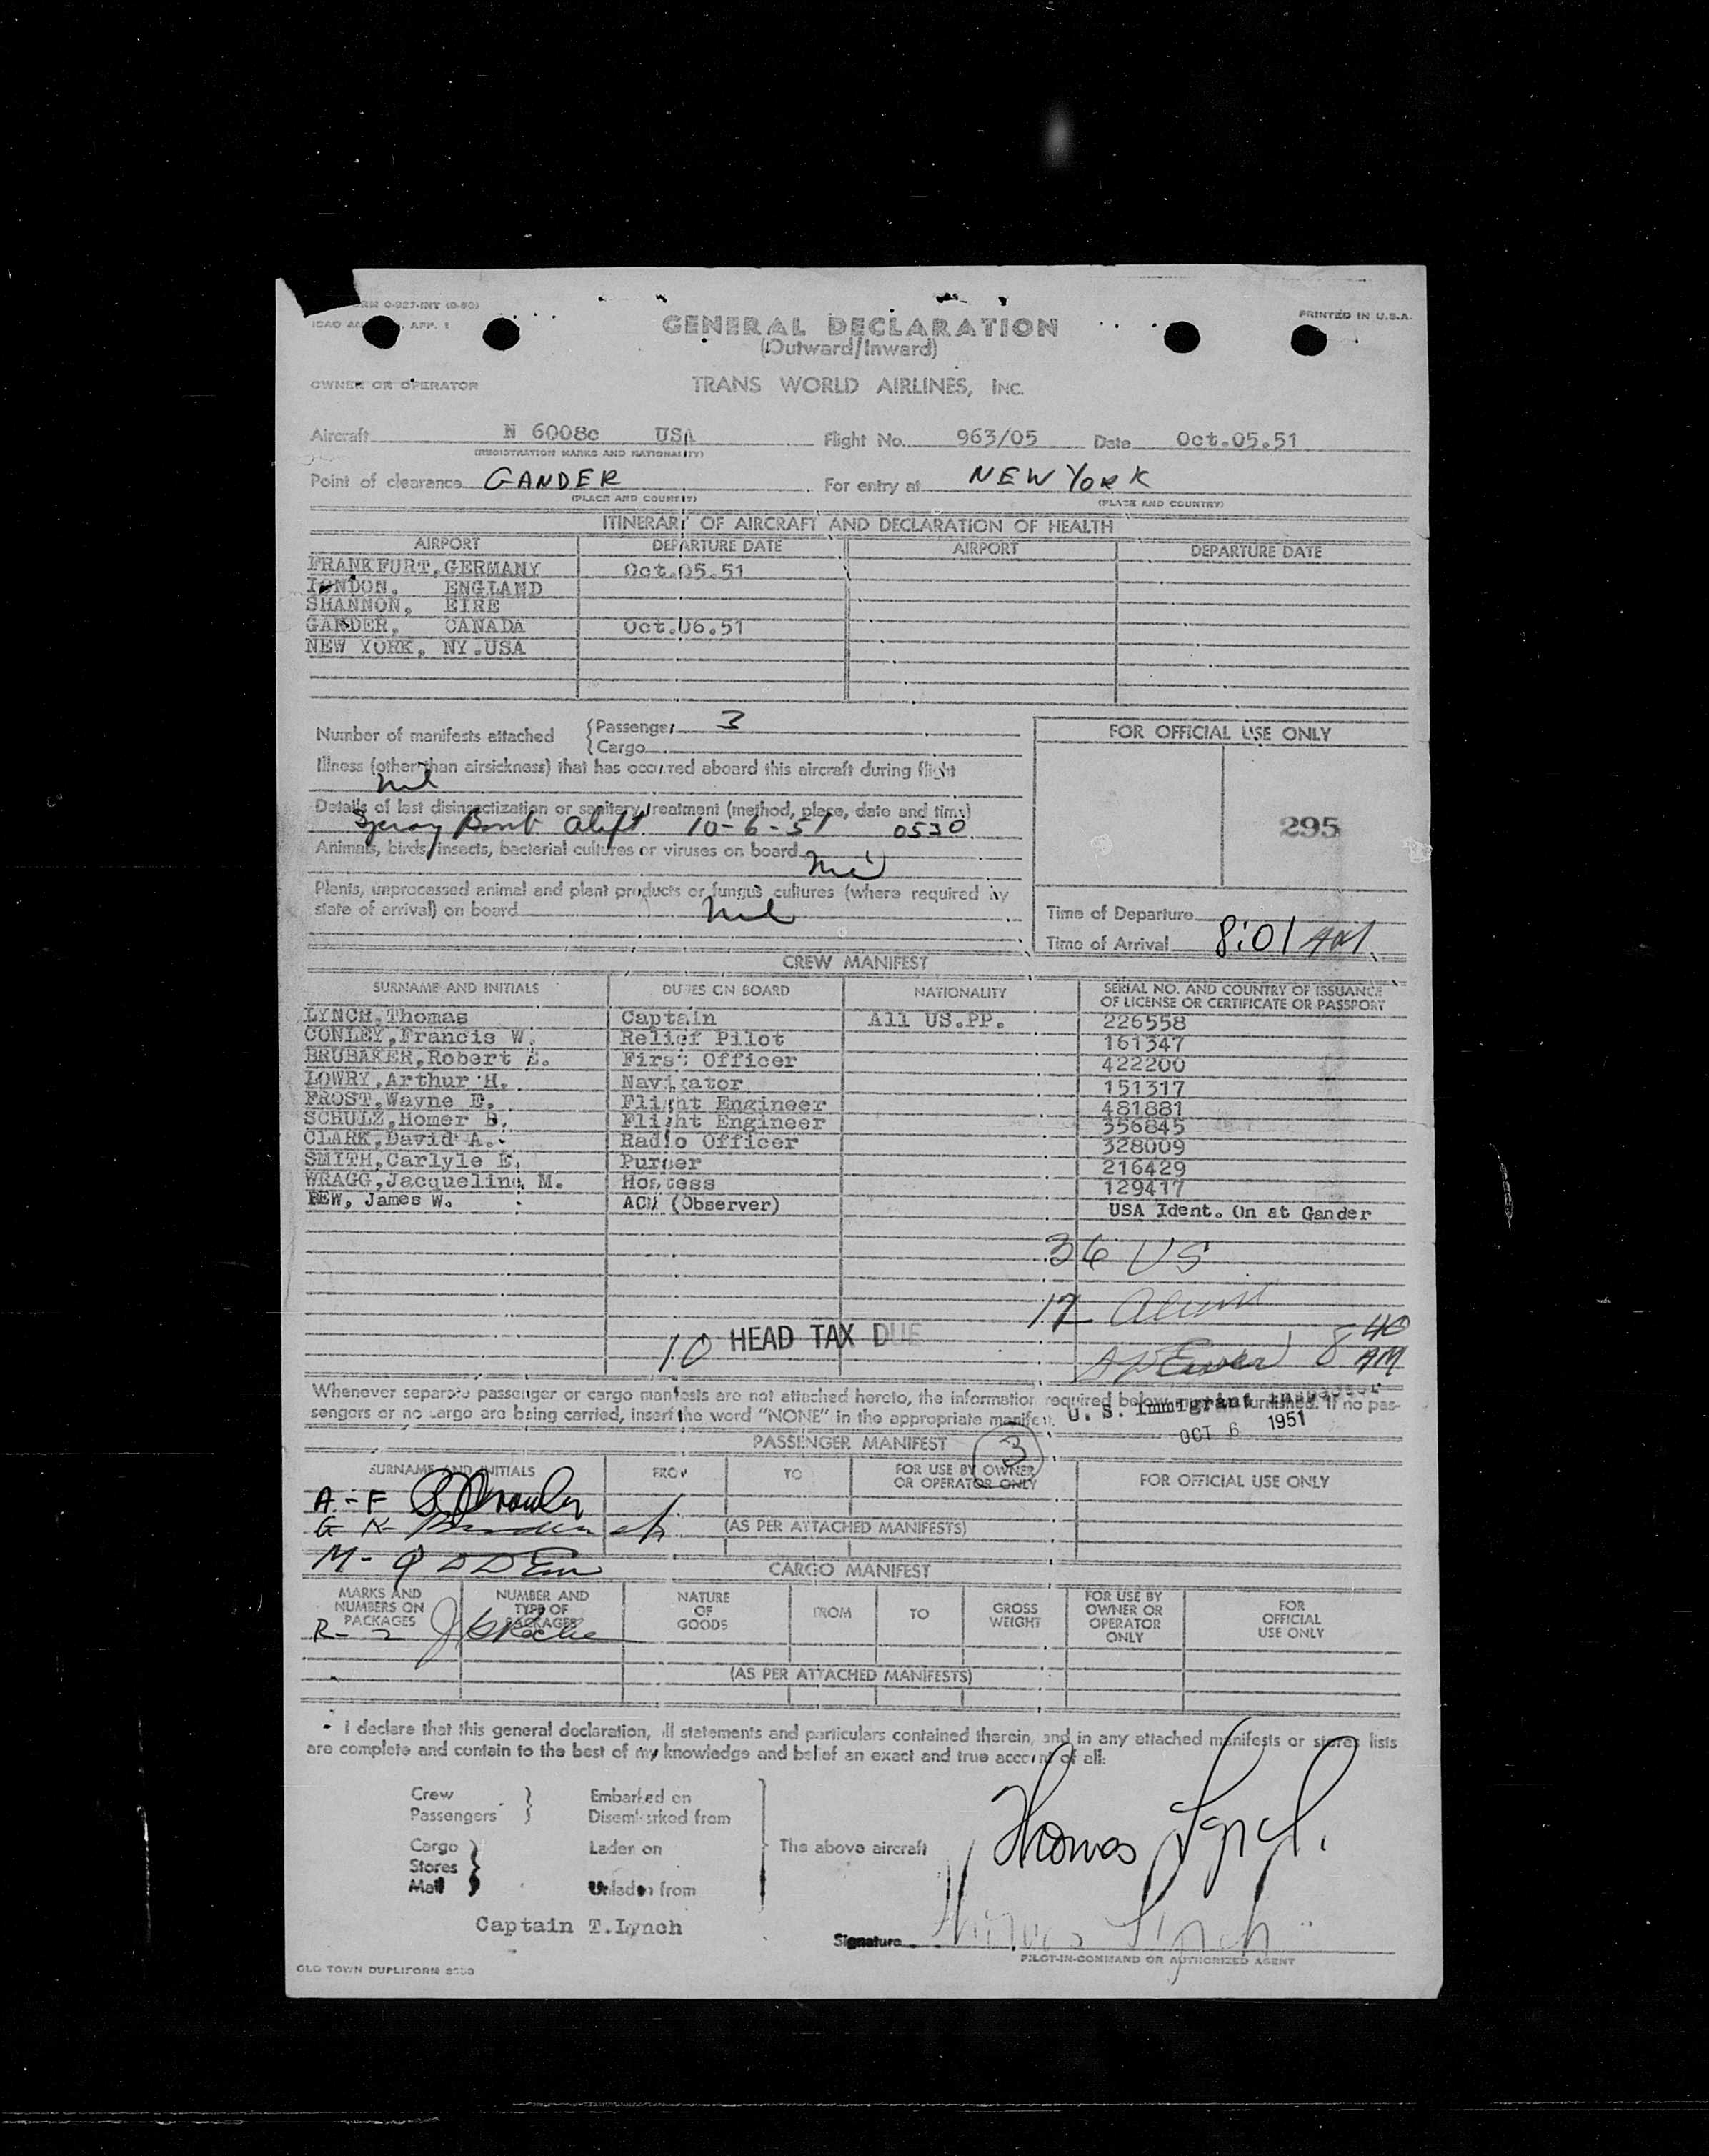 ORM 0-927-INT (9-50)
ICAO AN , APP. 1
PRINTED IN U.S.A.
GENERAL DECLARATION
(Outward/Inward)
OWNER OR OPERATOR TRANS WORLD AIRLINES, INC.
Aircraft N 6008c USA Flight No. 963/05 Date Oct.05.51
(REGISTRATION MARKS AND NATIONALITY)
Point of clearance GANDER For entry at NEW YORK
(PLACE AND COUNTRY) (PLACE AND COUNTRY)
ITINERARY OF AIRCRAFT AND DECLARATION OF HEALTH
AIRPORT DEPARTURE DATE AIRPORT DEPARTURE DATE
FRANKFURT,GERMANY Oct.05.51
LONDON, ENGLAND
SHANNON, EIRE
GANDER, CANADA Oct.06.51
NEW YORK, NY.USA
Number of manifests attached Passenger 3
Cargo
FOR OFFICIAL USE ONLY
Illness (other than airsickness) that has occurred aboard this aircraft during flight
nil
Details of last disinsectization or sanitary treatment (method, place, date and time)
Spray Bomb aloft 10-6-51 0530
295
Animals, birds, insects, bacterial cultures or viruses on board nil
Plants, unprocessed animal and plant products or fungus cultures (where required by
state of arrival) on board nil
Time of Departure
Time of Arrival 8:01 AM.
CREW MANIFEST
SURNAME AND INITIALS DUTIES ON BOARD NATIONALITY SERIAL NO. AND COUNTRY OF ISSUANCE
OF LICENSE OR CERTIFICATE OR PASSPORT
LYNCH,Thomas Captain All US.PP. 226558
CONLEY,Francis W. Relief Pilot 161347
BRUBAKER,Robert E. First Officer 422200
LOWRY,Arthur H. Navigator 151317
FROST,Wayne E. Flight Engineer 481881
SCHULZ,Homer B. Flight Engineer 356845
CLARK,David A. Radio Officer 328009
SMITH,Carlyle E. Purser 216429
WRAGG,Jacqueline M. Hostess 129417
FEW, James W. ACM (Observer) USA Ident. On at Gander
36 US
17 Aliens
10 HEAD TAX DUE
8 40 AM
Whenever separate passenger or cargo manifests are not attached hereto, the information required below must be furnished. If no pas-
sengers or no cargo are being carried, insert the word "NONE" in the appropriate manifest.
U. S. Immigrant Inspector
OCT 6 1951
PASSENGER MANIFEST 3
SURNAME AND INITIALS FROM TO FOR USE BY OWNER
OR OPERATOR ONLY FOR OFFICIAL USE ONLY
A - F
G K
(AS PER ATTACHED MANIFESTS)
M - Q
CARGO MANIFEST
MARKS AND
NUMBERS ON
PACKAGES NUMBER AND
TYPE OF
PACKAGES NATURE
OF
GOODS FROM TO GROSS
WEIGHT FOR USE BY
OWNER OR
OPERATOR
ONLY FOR
OFFICIAL
USE ONLY
R-
(AS PER ATTACHED MANIFESTS)
I declare that this general declaration, all statements and particulars contained therein, and in any attached manifests or stores lists
are complete and contain to the best of my knowledge and belief an exact and true account of all:
Crew Embarked on
Passengers Disembarked from
Cargo Laden on The above aircraft
Stores
Mail Unladen from
Thomas Lynch.
Captain T.Lynch
Signature Thomas Lynch
PILOT-IN-COMMAND OR AUTHORIZED AGENT
OLD TOWN DUPLIFORM